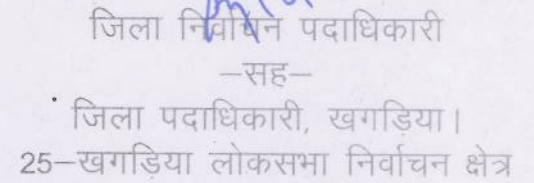 जिला निर्वाचन पदाधिकारी
–सह–
जिला पदाधिकारी, खगड़िया।
25–खगड़िया लोकसभा निर्वाचन क्षेत्र